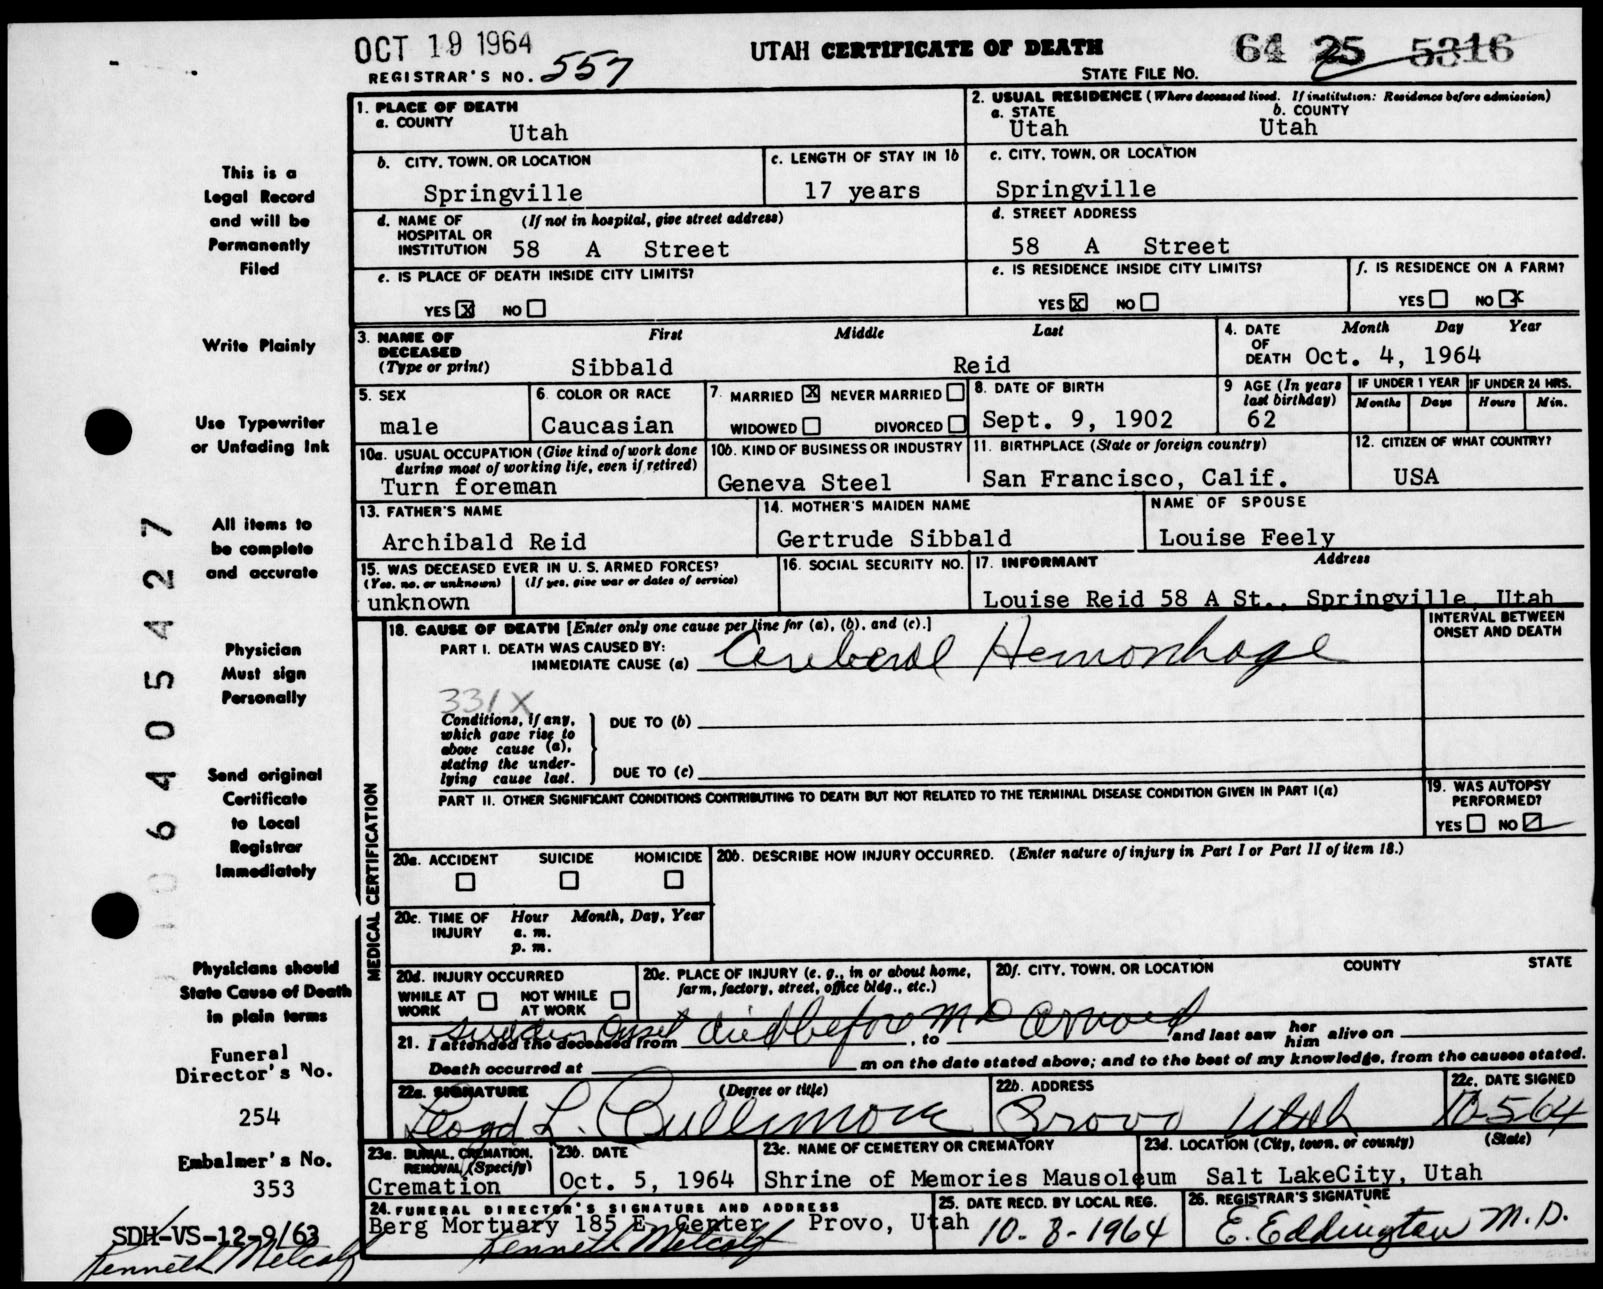 OCT 19 1964
UTAH CERTIFICATE OF DEATH
64 25 5316
REGISTRAR'S NO. 557
STATE FILE NO.
1. PLACE OF DEATH
a. COUNTY
Utah
2. USUAL RESIDENCE (Where deceased lived. If institution: Residence before admission)
a. STATE b. COUNTY
Utah Utah
b. CITY, TOWN, OR LOCATION
Springville
c. LENGTH OF STAY IN 1b
17 years
c. CITY, TOWN, OR LOCATION
Springville
d. NAME OF HOSPITAL OR INSTITUTION (If not in hospital, give street address)
58 A Street
d. STREET ADDRESS
58 A Street
e. IS PLACE OF DEATH INSIDE CITY LIMITS?
YES X NO
e. IS RESIDENCE INSIDE CITY LIMITS?
YES X NO
f. IS RESIDENCE ON A FARM?
YES NO X
3. NAME OF DECEASED (Type or print)
First Middle Last
Sibbald Reid
4. DATE OF DEATH Month Day Year
Oct. 4, 1964
5. SEX
male
6. COLOR OR RACE
Caucasian
7. MARRIED X NEVER MARRIED
WIDOWED DIVORCED
8. DATE OF BIRTH
Sept. 9, 1902
9 AGE (In years last birthday)
62
IF UNDER 1 YEAR
Months Days
IF UNDER 24 HRS.
Hours Min.
10a. USUAL OCCUPATION (Give kind of work done during most of working life, even if retired)
Turn foreman
10b. KIND OF BUSINESS OR INDUSTRY
Geneva Steel
11. BIRTHPLACE (State or foreign country)
San Francisco, Calif.
12. CITIZEN OF WHAT COUNTRY?
USA
13. FATHER'S NAME
Archibald Reid
14. MOTHER'S MAIDEN NAME
Gertrude Sibbald
NAME OF SPOUSE
Louise Feely
15. WAS DECEASED EVER IN U. S. ARMED FORCES?
(Yes, no, or unknown) (If yes, give war or dates of service)
unknown
16. SOCIAL SECURITY NO.
17. INFORMANT Address
Louise Reid 58 A St., Springville, Utah
MEDICAL CERTIFICATION
18. CAUSE OF DEATH [Enter only one cause per line for (a), (b), and (c).]
PART I. DEATH WAS CAUSED BY:
IMMEDIATE CAUSE (a) Cerebral Hemorrhage
INTERVAL BETWEEN ONSET AND DEATH
331X
Conditions, if any, which gave rise to above cause (a), stating the underlying cause last.
DUE TO (b)
DUE TO (c)
PART II. OTHER SIGNIFICANT CONDITIONS CONTRIBUTING TO DEATH BUT NOT RELATED TO THE TERMINAL DISEASE CONDITION GIVEN IN PART I(a)
19. WAS AUTOPSY PERFORMED?
YES NO
20a. ACCIDENT SUICIDE HOMICIDE
20b. DESCRIBE HOW INJURY OCCURRED. (Enter nature of injury in Part I or Part II of item 18.)
20c. TIME OF INJURY Hour Month, Day, Year
a. m.
p. m.
20d. INJURY OCCURRED
WHILE AT WORK NOT WHILE AT WORK
20e. PLACE OF INJURY (e. g., in or about home, farm, factory, street, office bldg., etc.)
20f. CITY, TOWN, OR LOCATION COUNTY STATE
Sudden Onset died before MD arrived
21. I attended the deceased from , to and last saw her him alive on
Death occurred at m on the date stated above; and to the best of my knowledge, from the causes stated.
22a. SIGNATURE (Degree or title)
Lloyd L. Cullimore
22b. ADDRESS
Provo Utah
22c. DATE SIGNED
10-5-64
23a. BURIAL, CREMATION, REMOVAL (Specify)
Cremation
23b. DATE
Oct. 5, 1964
23c. NAME OF CEMETERY OR CREMATORY
Shrine of Memories Mausoleum
23d. LOCATION (City, town, or county) (State)
Salt LakeCity, Utah
24. FUNERAL DIRECTOR'S SIGNATURE AND ADDRESS
Berg Mortuary 185 E. Center Provo, Utah
Kenneth Metcalf
25. DATE RECD. BY LOCAL REG.
10-8-1964
26. REGISTRAR'S SIGNATURE
E. Eddington M.D.
This is a
Legal Record
and will be
Permanently
Filed
Write Plainly
Use Typewriter
or Unfading Ink
All items to
be complete
and accurate
Physician
Must sign
Personally
Send original
Certificate
to Local
Registrar
Immediately
Physicians should
State Cause of Death
in plain terms
Funeral
Director's No.
254
Embalmer's No.
353
SDH-VS-12-9/63
Kenneth Metcalf
0 6 4 0 5 4 2 7